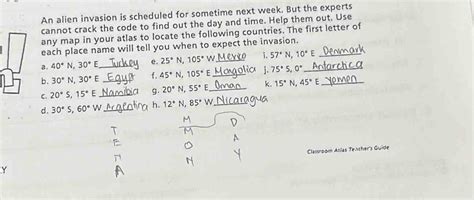 An alien invasion is scheduled for sometime next week. But the experts
cannot crack the code to find out the day and time. Help them out. Use
any map in your atlas to locate the following countries. The first letter of
each place name will tell you when to expect the invasion.
a. 40° N, 30° E Turkey e. 25° N, 105° W Mexico i. 57° N, 10° E Denmark
b. 30° N, 30° E Egypt f. 45° N, 105° E Mongolia j. 75° S, 0° Antarctica
c. 20° S, 15° E Namibia g. 20° N, 55° E Oman k. 15° N, 45° E Yemen
d. 30° S, 60° W Argentina h. 12° N, 85° W Nicaragua
T M D
E M A
N O Y
A N
Classroom Atlas Teacher's Guide
Y